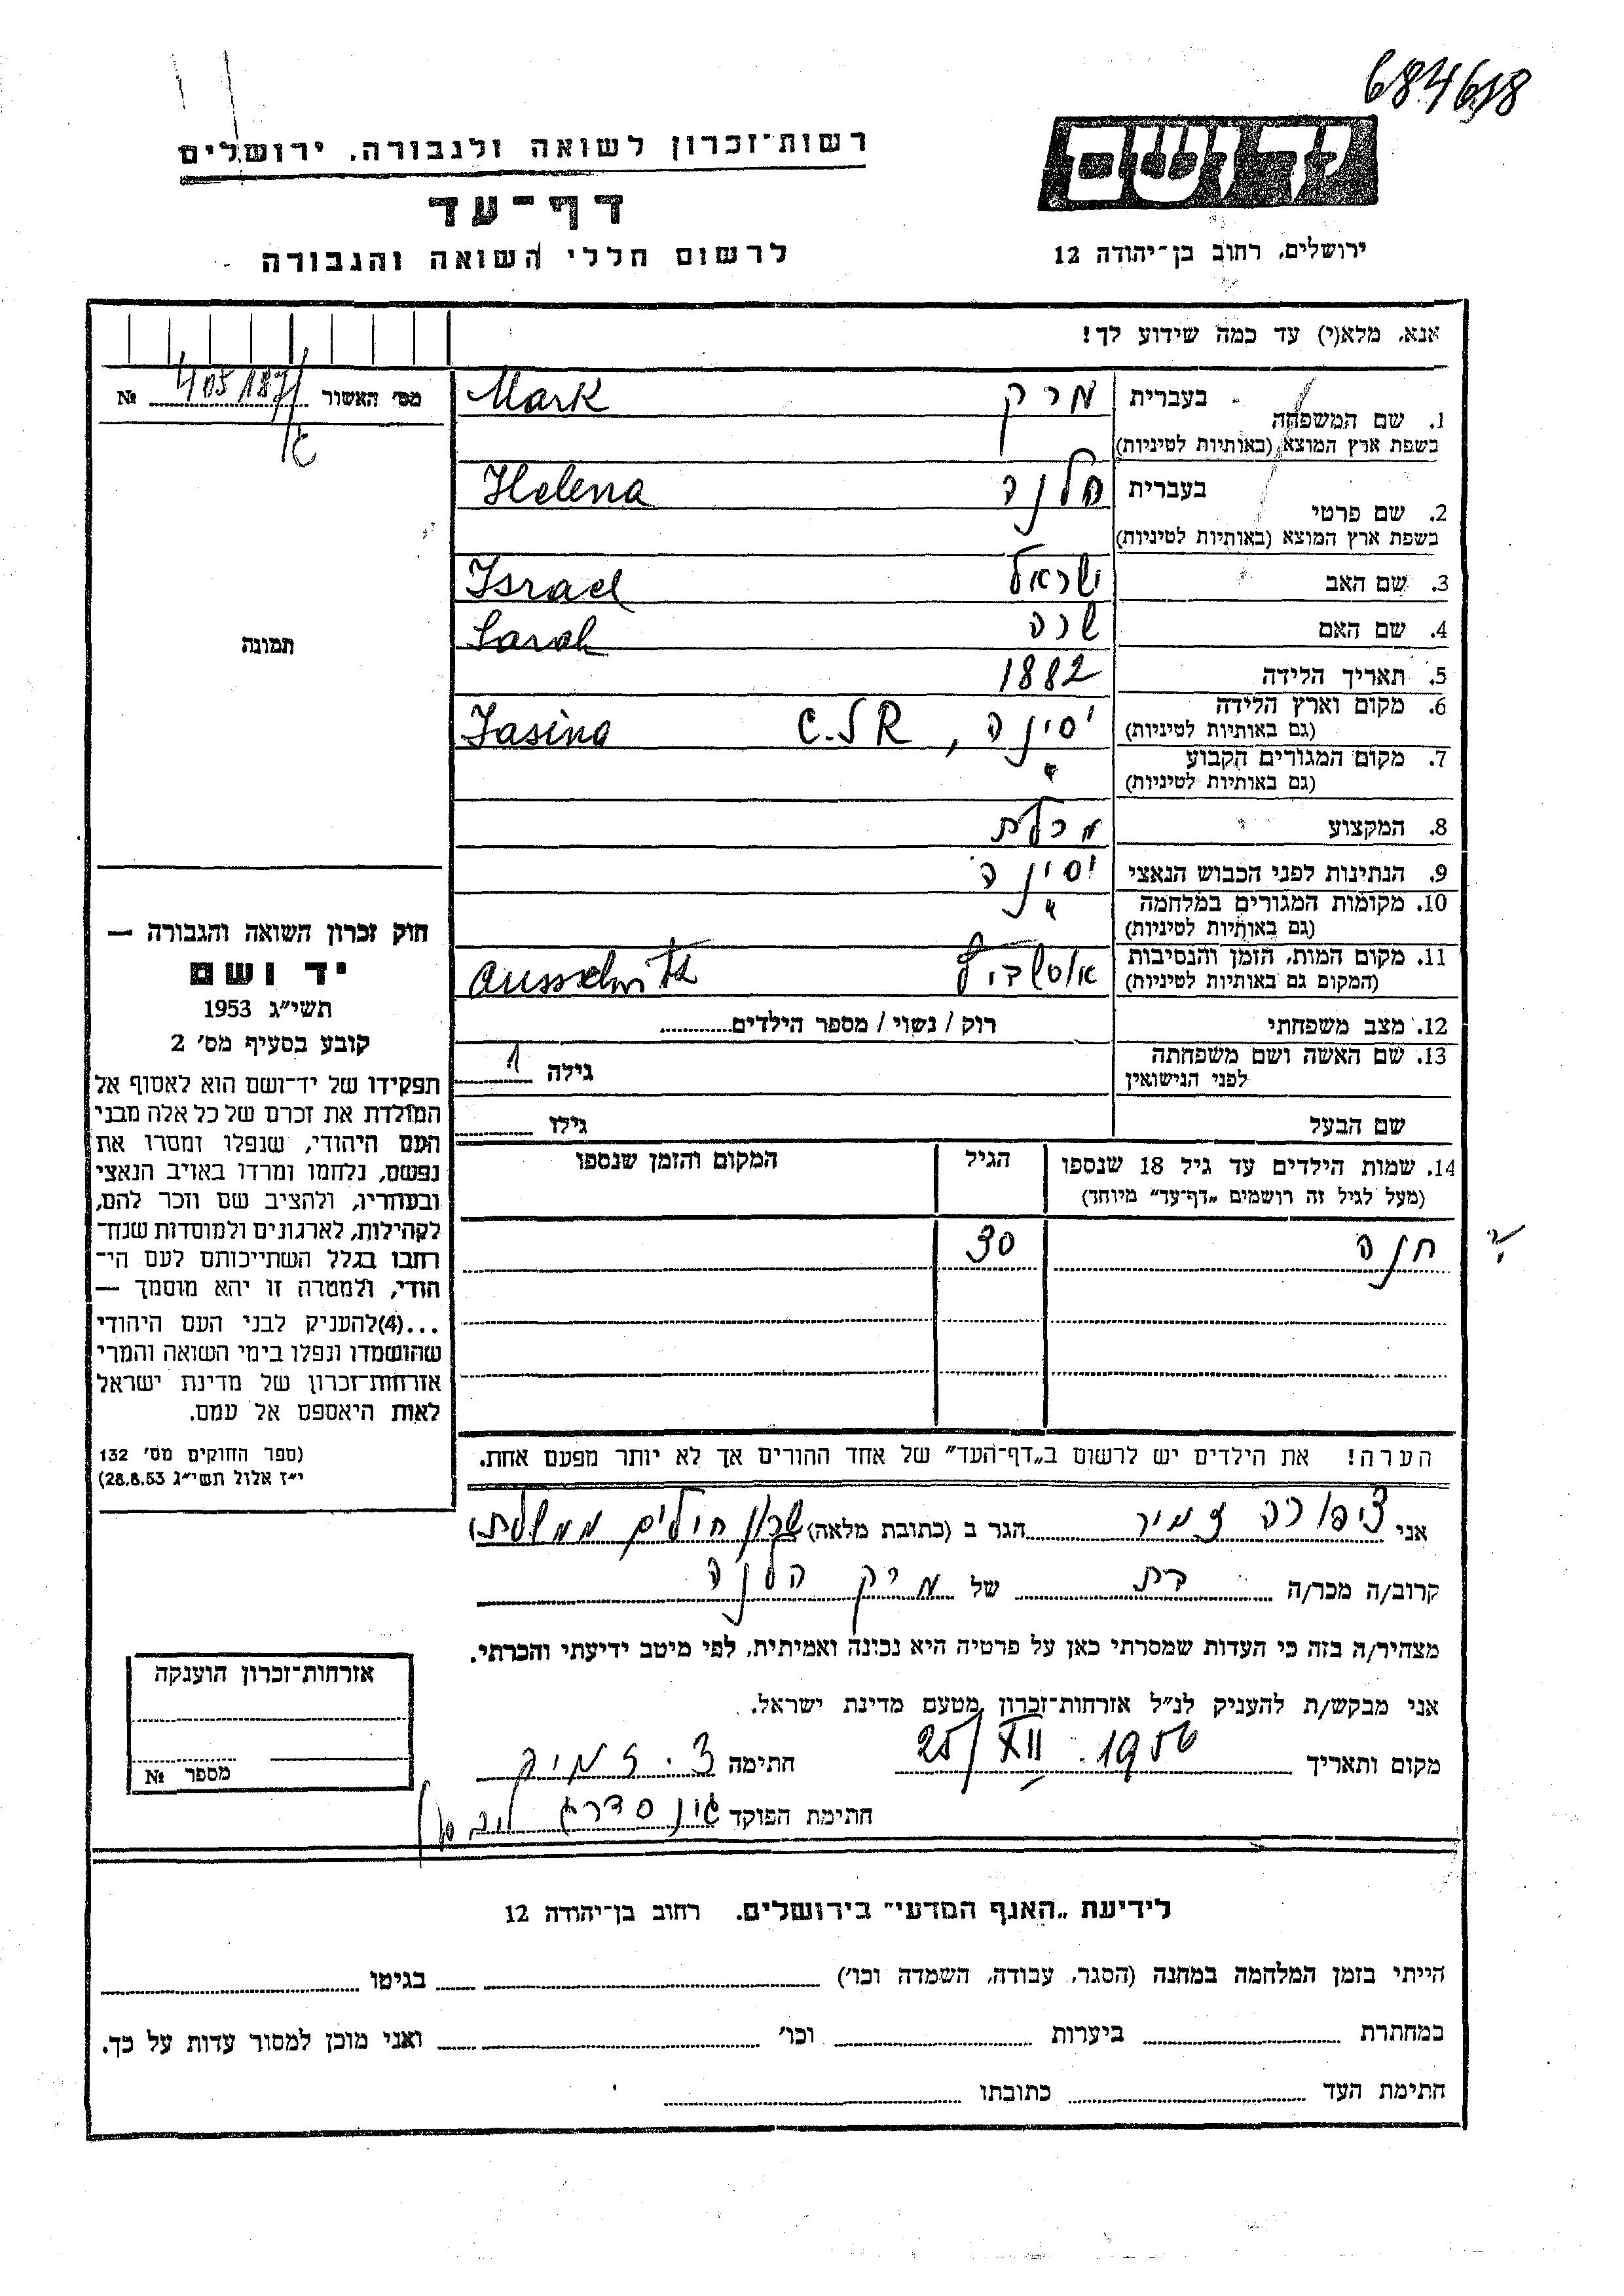 684618
רשות־זכרון לשואה ולגבורה, ירושלים
יד ושם
דף־עד
לרשום חללי השואה והגבורה
ירושלים, רחוב בן־יהודה 12
אנא, מלא(י) עד כמה שידוע לך!
מס׳ האשור 405187 №
1. שם המשפחה בעברית מרק Mark
בשפת ארץ המוצא (באותיות לטיניות)
2. שם פרטי בעברית הלנה Helena
בשפת ארץ המוצא (באותיות לטיניות)
3. שם האב ישראל Israel
4. שם האם שרה Sarah
5. תאריך הלידה 1882
6. מקום וארץ הלידה יסינה, C.S.R Jasina
(גם באותיות לטיניות)
7. מקום המגורים הקבוע "
(גם באותיות לטיניות)
8. המקצוע
9. הנתינות לפני הכבוש הנאצי יסינה
10. מקומות המגורים במלחמה "
(גם באותיות לטיניות)
11. מקום המות, הזמן והנסיבות אושביץ Ausschwitz
(המקום גם באותיות לטיניות)
12. מצב משפחתי רוק / נשוי / מספר הילדים
13. שם האשה ושם משפחתה גילה 1
לפני הנישואין
שם הבעל גילו
14. שמות הילדים עד גיל 18 שנספו הגיל המקום והזמן שנספו
(מעל לגיל זה רושמים „דף־עד״ מיוחד)
חנה 30
הערה! את הילדים יש לרשום ב„דף־העד״ של אחד ההורים אך לא יותר מפעם אחת.
תמונה
חוק זכרון השואה והגבורה —
יד ושם
תשי״ג 1953
קובע בסעיף מס׳ 2
תפקידו של יד־ושם הוא לאסוף אל
המולדת את זכרם של כל אלה מבני
העם היהודי, שנפלו ומסרו את
נפשם, נלחמו ומרדו באויב הנאצי
ובעוזריו, ולהציב שם וזכר להם,
לקהילות, לארגונים ולמוסדות שנח־
רבו בגלל השתייכותם לעם הי־
הודי, ולמטרה זו יהא מוסמך —
...(4)להעניק לבני העם היהודי
שהושמדו ונפלו בימי השואה והמרי
אזרחות־זכרון של מדינת ישראל
לאות היאספם אל עמם.
(ספר החוקים מס׳ 132
י״ז אלול תשי״ג 28.8.53)
אני ציפורה זמיר הגר ב (כתובת מלאה) חולים ממשלתי
קרוב/ה מכר/ה בת של מרק הלנה
מצהיר/ה בזה כי העדות שמסרתי כאן על פרטיה היא נכונה ואמיתית, לפי מיטב ידיעתי והכרתי.
אני מבקש/ת להעניק לנ״ל אזרחות־זכרון מטעם מדינת ישראל.
מקום ותאריך 25/XII.1956 חתימה צ. זמיר
חתימת הפוקד
אזרחות־זכרון הוענקה
מספר №
לידיעת „האגף המדעי״ בירושלים, רחוב בן־יהודה 12
הייתי בזמן המלחמה במחנה (הסגר, עבודה, השמדה וכו׳) בגיטו
במחתרת ביערות וכו׳ ואני מוכן למסור עדות על כך.
חתימת העד כתובתו